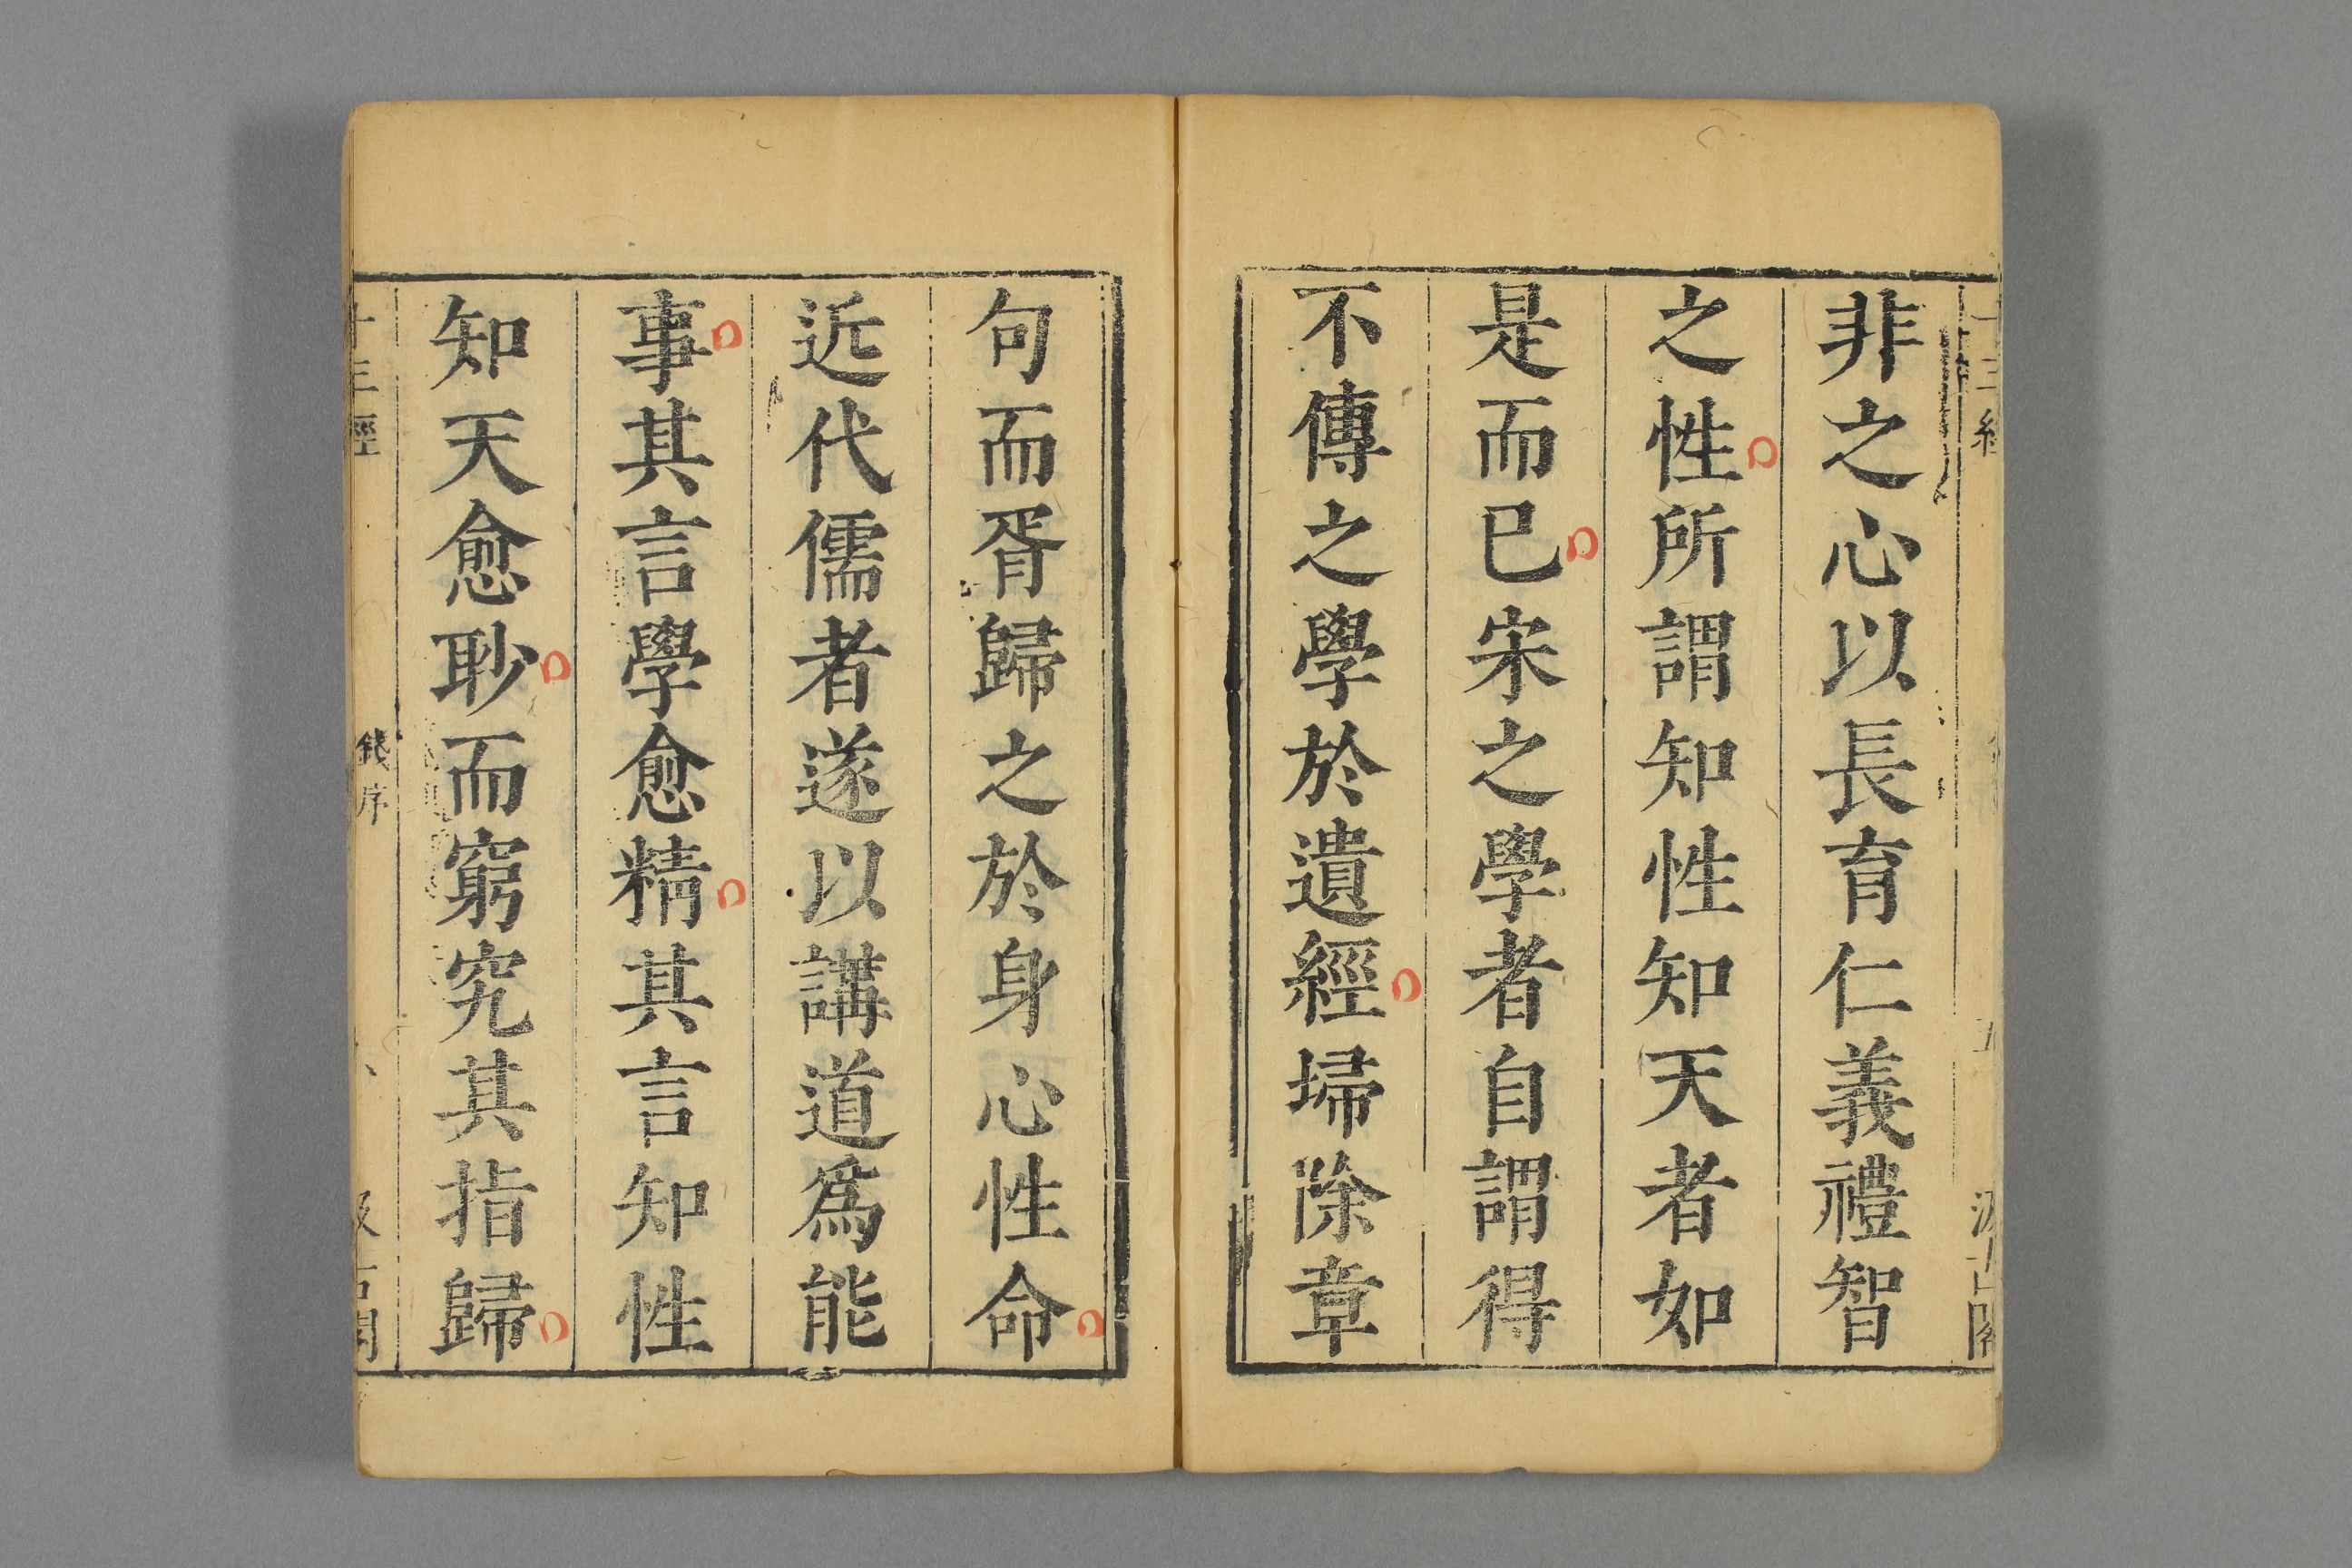 非之心以長育仁義禮智
之性所謂知性知天者如
是而已宋之學者自謂得
不傳之學於遺經埽除章
句而胥歸之於身心性命
近代儒者遂以講道爲能
事其言學愈精其言知性
知天愈眇而窮究其指歸
十三經 錢序